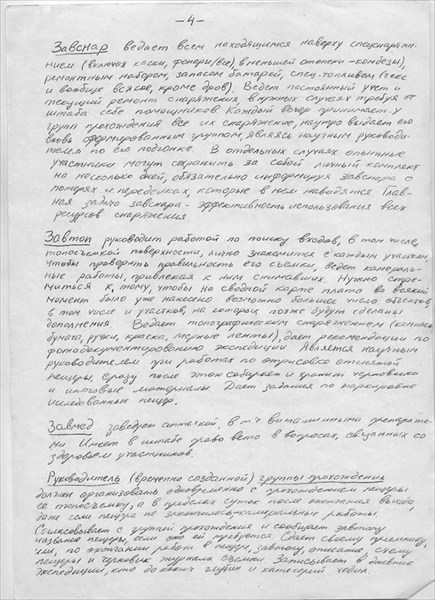 — 4 —
Завснар ведает всем находящимся наверху спецснаряже-
нием (включая каски, фонари/все/, в меньшей степени - комбезы),
ремонтным набором, запасом батарей, спец-топливом (
и вообще всяков, кроме дров). Ведет постоянный учет и
текущий ремонт снаряжения, в нужных случаях требуя от
штаба себе помощников. Каждый вечер принимает у
групп прохождения все их снаряжение, наутро выдает его
вновь сформированным группам, являясь научным руководи-
телем по его подгонке. В отдельных случаях опытные
участники могут сохранить за собой личный комплект
на несколько дней, обязательно информируя завснара о
потерях и переделках, которые в нем наводятся Глав-
ная задача завснара - эффективность использования всех
ресурсов снаряжения
Завтоп руководит работой по поиску входов, в том числе,
топосъемкой поверхности, лично знакомится с каждым участком,
чтобы проверить правильность его съемки, ведет камераль-
ные работы, привлекая к ним снимавших. Нужно стре-
миться к тому, чтобы на сводной карте плато во всякий
момент было уже нанесено возможно большее число объектов,
в том числе и участков, на которых позже будут сделаны
дополнения Ведает топографическим снаряжением (
бумага, ручки, краска, мерные ленты), дает рекомендации по
фотодокументированию экспедиции Является научным
руководителем при работах по отрисовке отснятой
пещеры, сразу после этого собирает и хранит черновики
и итоговые материалы Дает задания по маркировке
исследованных пещер.
Завмед заведует аптечкой, в т.ч витаминными препарата-
ми Имеет в штабе право вето в вопросах, связанных со
здоровьем участников.
Руководитель (временно созданной) группы прохождения
должен организовать одновременно с прохождением пещеры
ее топосъемку, а в пределах суток после окончания выхода,
даже если пещера не закончилась-камеральные работы
Согласовывает с группой прохождения и сообщает завтопу
название пещеры, если оно ей требуется Сдает своему преемнику,
или, по окончании работ в пещере, завтопу, описание, схему
пещеры и черновик журнала съемки Записывает в дневник
экспедиции, кто до каких глубин и категорий ходил.